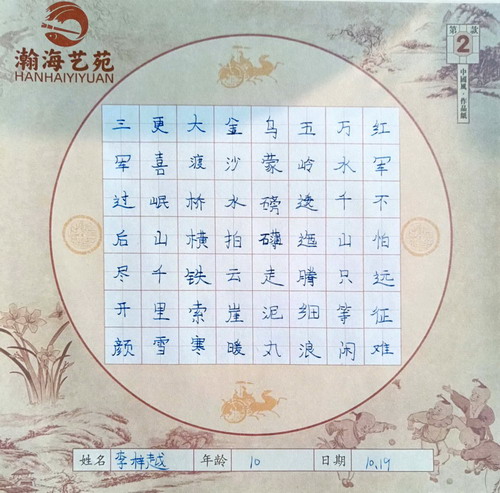 瀚海艺苑
HANHAIYIYUAN
第2款
中國風·作品紙
红军不怕远征难
万水千山只等闲
五岭逶迤腾细浪
乌蒙磅礴走泥丸
金沙水拍云崖暖
大渡桥横铁索寒
更喜岷山千里雪
三军过后尽开颜
姓名 李梓越 年龄 10 日期 10.19